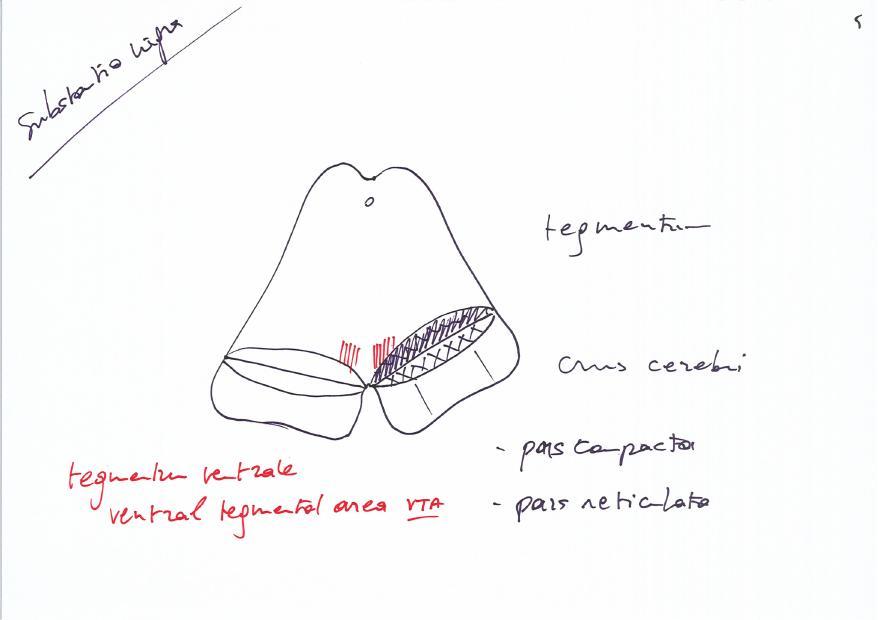 Substantia nigra
5
tegmentum
crus cerebri
- pars compacta
- pars reticulata
tegmentum ventrale
ventral tegmental area VTA